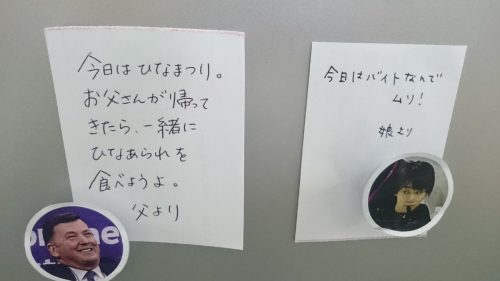 今日はひなまつり。
お父さんが帰って
きたら、一緒に
ひなあられを
食べようよ。
父より
今日はバイトなんで
ムリ!
娘より